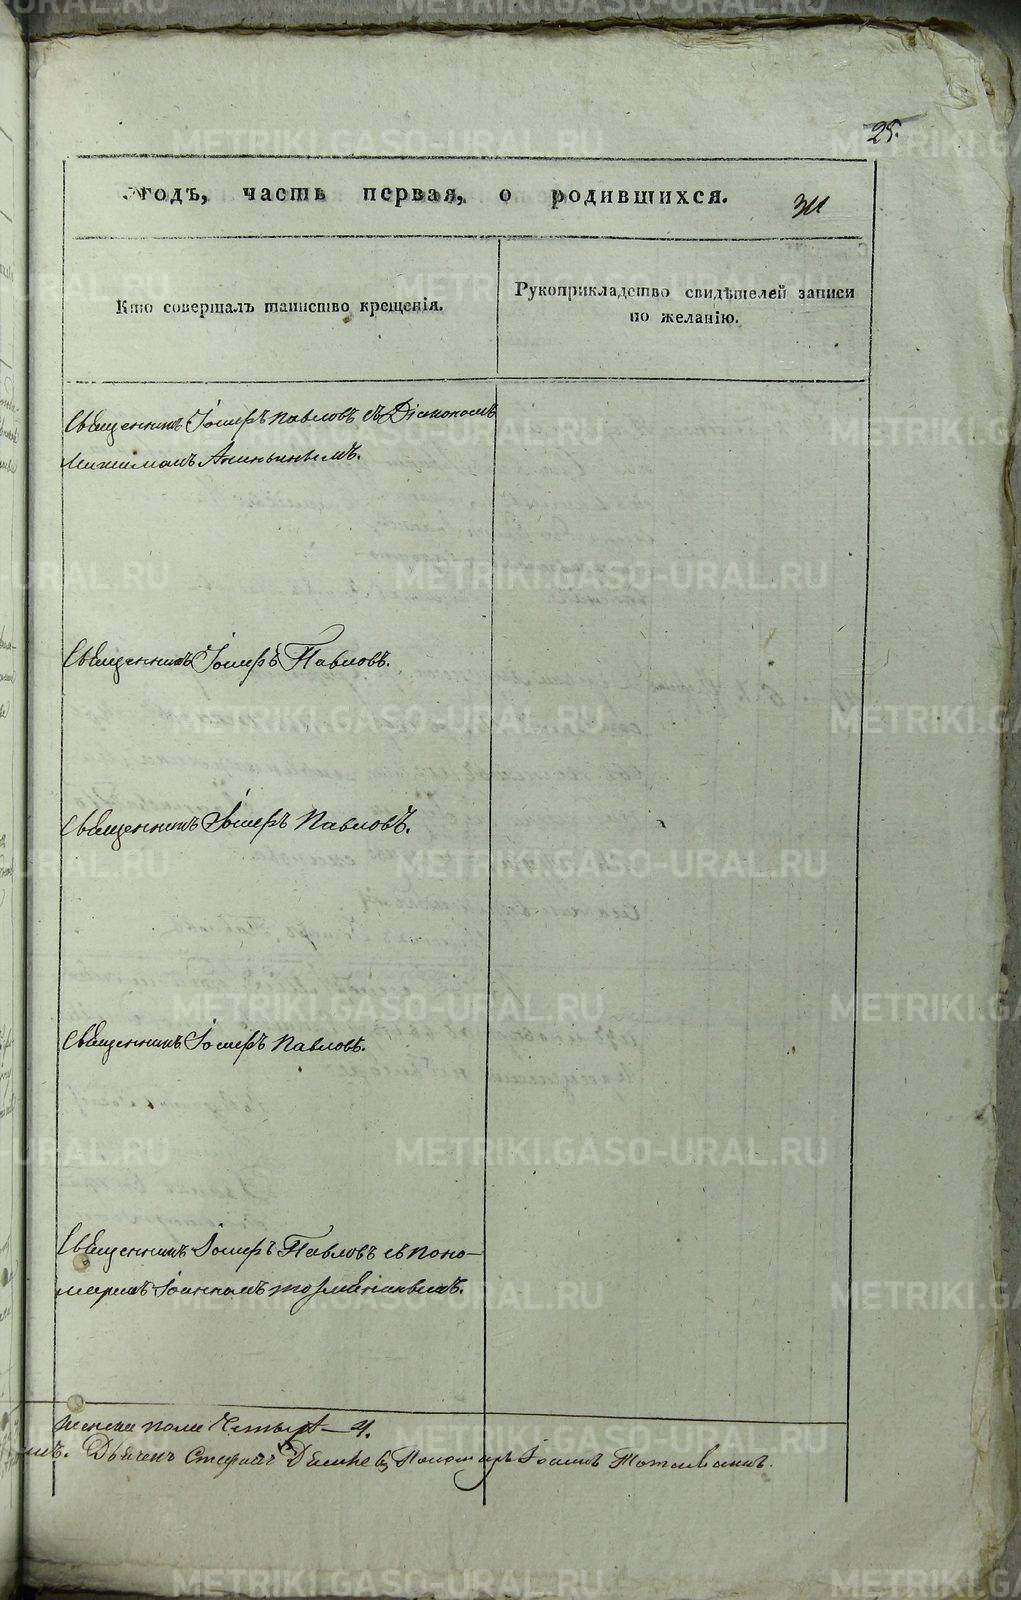 METRIKI.GASO-URAL.RU
25.
годъ, часть первая, о родившихся.
311
Кто совершалъ таинство крещенія.
Рукоприкладство свидѣтелей записи
по желанію.
Священникъ Іосифъ Павловъ съ Діакономъ
Ананьинымъ.
Священникъ Іосифъ Павловъ.
Священникъ Іосифъ Павловъ.
Священникъ Іосифъ Павловъ.
Священникъ Іосифъ Павловъ съ поно-
маремъ Іоанномъ
женска пола четыре — 4.
Дьячекъ Стефанъ Пономарь Іоаннъ